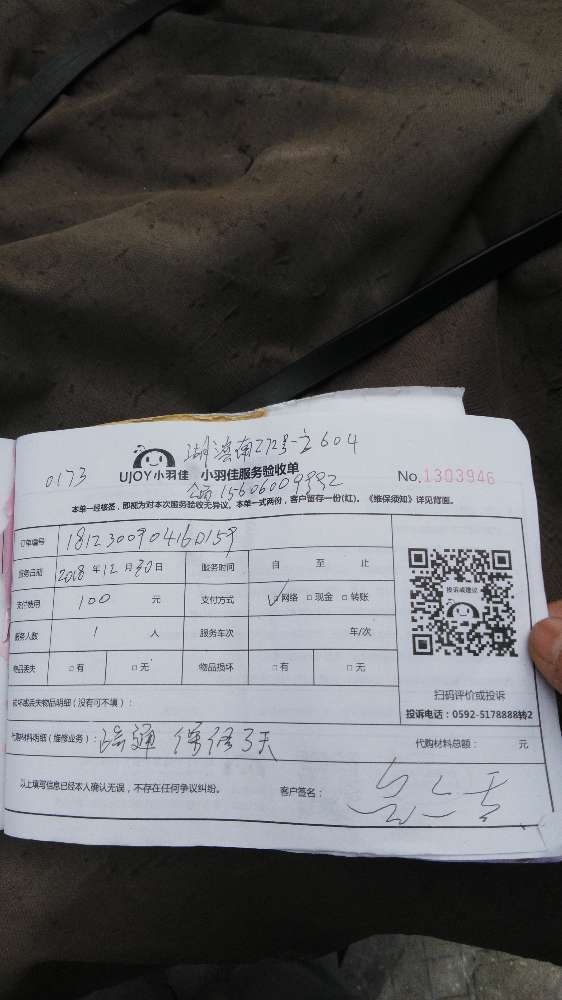 湖滨南272号-之604
0173
UJOY小羽佳 小羽佳服务验收单
No.1303946
15606009992
本单一经核签，即视为对本次服务验收无异议。本单一式两份，客户留存一份(红)。《维保须知》详见背面。
订单编号 1812300904160159
服务日期 2018 年 12 月 30 日 服务时间 自 至 止
支付费用 100 元 支付方式 ☑网络 □现金 □转账
服务人数 1 人 服务车次 车/次
物品丢失 □有 □无 物品损坏 □有 □无
投诉或建议
扫码评价或投诉
投诉电话：0592-5178888转2
破坏或丢失物品明细（没有可不填）：
代购材料明细（维修业务）： 疏通 保修3天 代购材料总额： 元
以上填写信息已经本人确认无误，不存在任何争议纠纷。 客户签名：